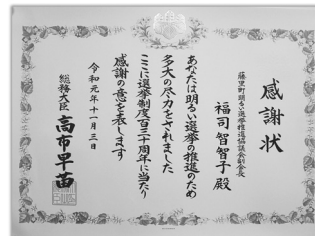 感謝状
藤里町明るい選挙推進協議会副会長
福司智智子殿
あなたは明るい選挙の推進のため
多大の尽力をされました
ここに選挙制度百三十周年に当たり
感謝の意を表します
令和元年十一月三日
総務大臣 高市早苗